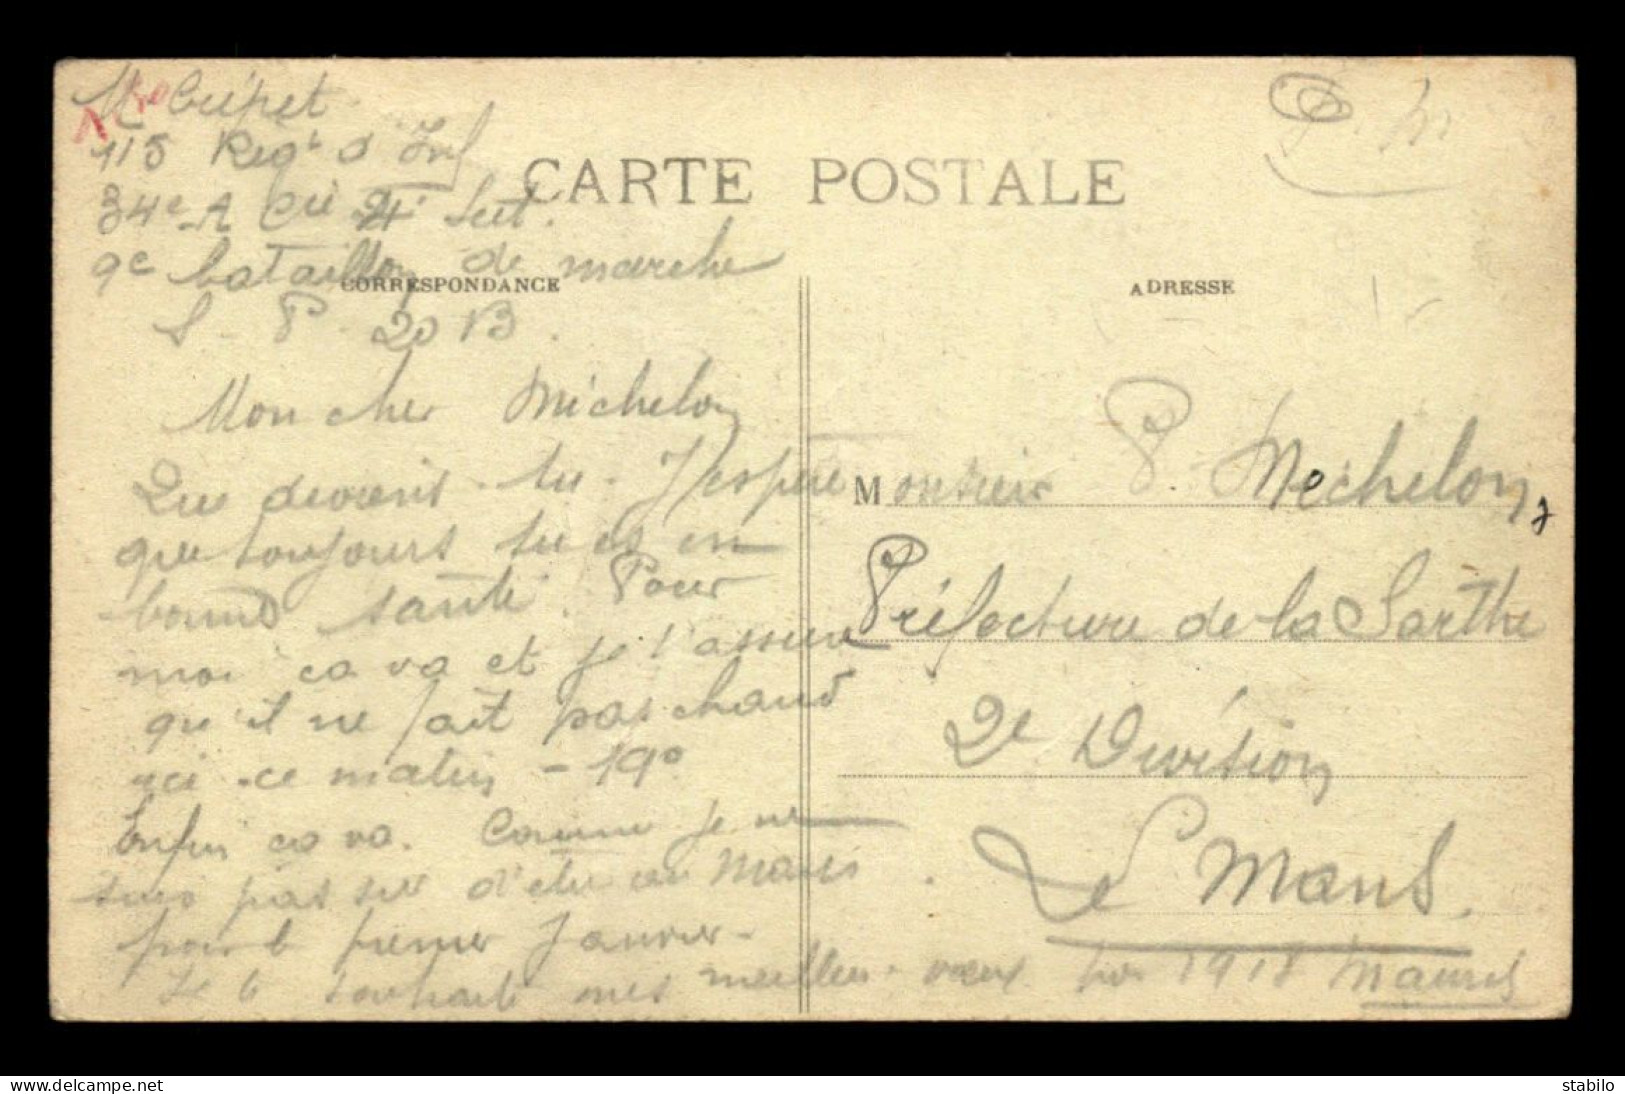 M Crépet
115 Regt d'Inf
34e A Cie 4e Sect.
9e bataillon de marche
S - P - 20 B
CARTE POSTALE
CORRESPONDANCE
Mon cher Michelon
Que deviens-tu. J'espère
que toujours tu es en
bonne santé. Pour
moi ca va et je t'assure
qu'il ne fait pas chaud
ici - ce matin - 19°
Enfin ca va. Comme je ne
suis pas sur d'etre au Mans
pour le premier Janvier -
Je te souhaite mes meilleurs vœux pour 1918 Maurice
P. M
ADRESSE
Monsieur P. Mechelon,
Préfecture de la Sarthe
2e Division
Le Mans.
delcampe.net
stabilo